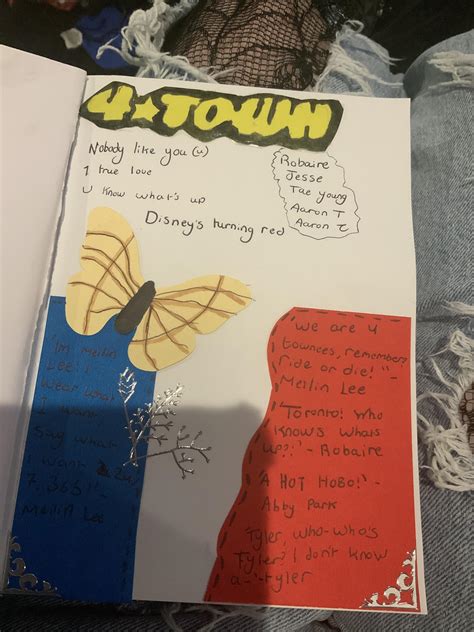 4★TOWN
Nobody like you (u)
1 true love
U know what's up
Disney's turning red
Robaire
Jesse
Tae young
Aaron T
Aaron Z
'I'm Meilin
Lee! I
wear what
I want
say what
I want 24/
7, 365!' -
Meilin Lee
'We are 4
townees, remember?
ride or die!' -
Meilin Lee
'Toronto! Who
knows whats
up?!' - Robaire
'A HOT HOBO!' -
Abby Park
'Tyler, who-who's
Tyler? I don't know
a-' - tyler